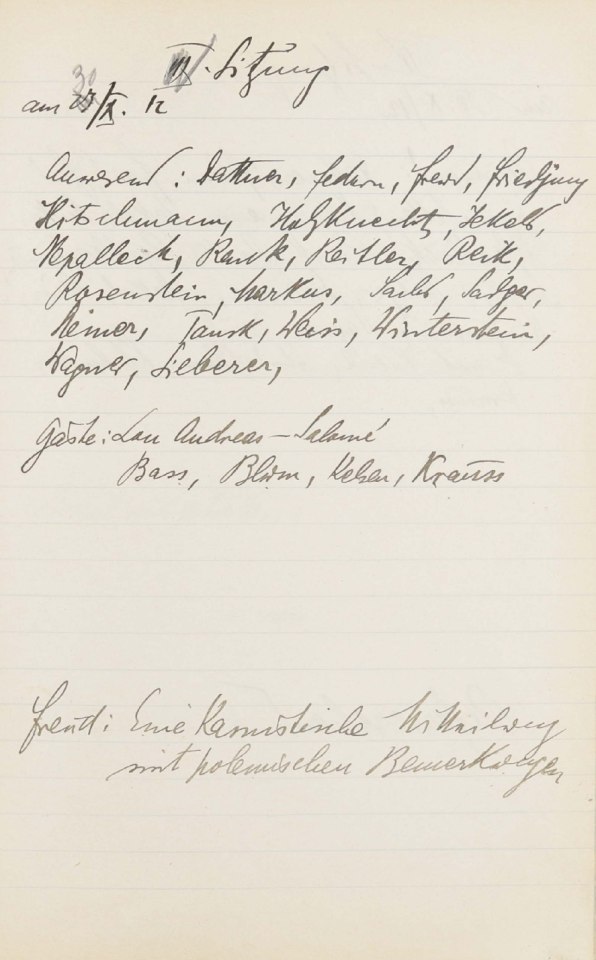 III. Sitzung
am 30/X. 12
Anwesend: Dattner, Federn, Freud, Friedjung
Hitschmann, Holzknecht, Jekels,
Nepalleck, Rank, Reitler, Reik,
Rosenstein, Markus, Sachs, Sadger,
Steiner, Tausk, Weiss, Winterstein,
Wagner, Sieberer,
Gäste: Lou Andreas-Salomé
Bass, Blum, Kelsen, Krauss
Freud: Eine Kasuistische Mitteilung
mit polemischen Bemerkungen